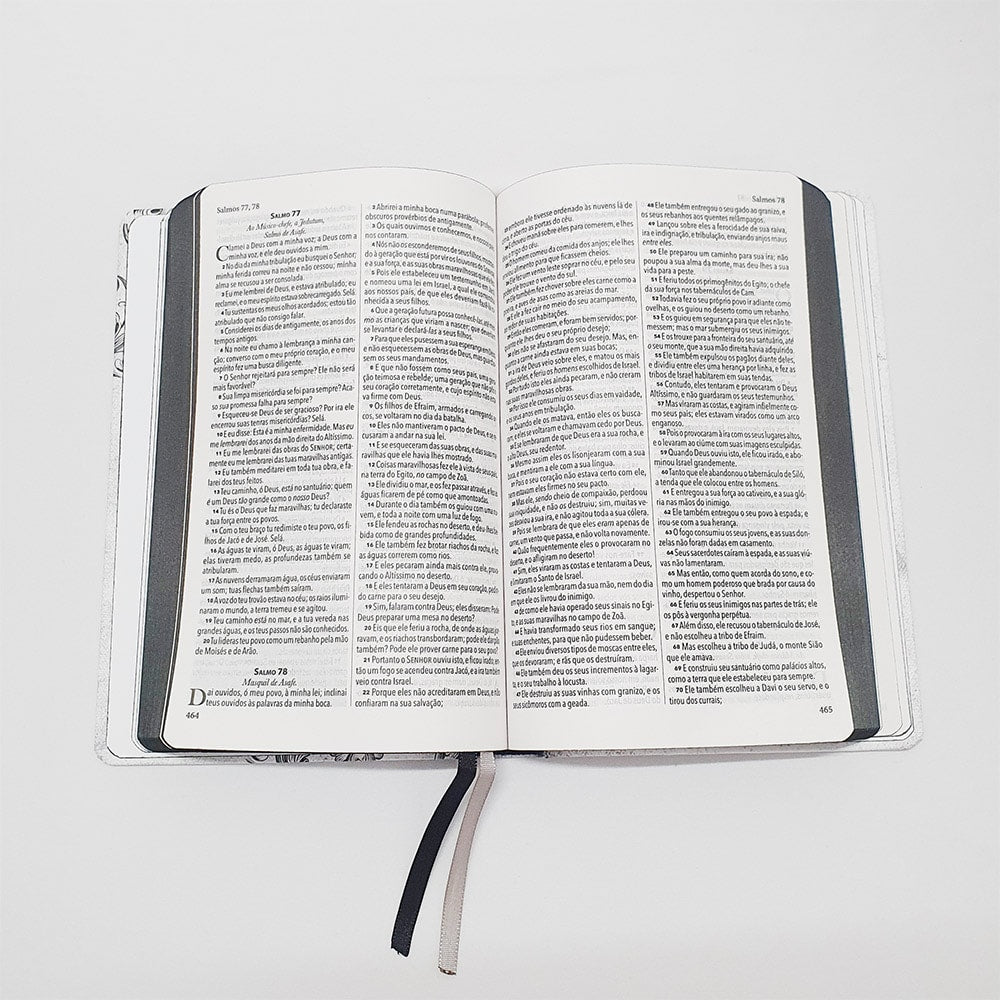 Salmos 77, 78
SALMO 77
Ao Músico-chefe, a Jedutum,
Salmo de Asafe.
Clamei a Deus com a minha voz; a Deus com a
minha voz, e ele deu ouvidos a mim.
2 No dia da minha tribulação eu busquei o Senhor;
minha ferida correu na noite e não cessou; minha
alma se recusou a ser consolada.
3 Eu me lembrei de Deus, e estava atribulado; eu
reclamei, e o meu espírito estava sobrecarregado. Selá.
4 Tu sustentas os meus olhos acordados; estou tão
atribulado que não consigo falar.
5 Considerei os dias de antigamente, os anos dos
tempos antigos.
6 Na noite eu chamo à lembrança a minha can-
ção; converso com o meu próprio coração, e o meu
espírito fez uma busca diligente.
7 O Senhor rejeitará para sempre? Ele não será
mais favorável?
8 Sua limpa misericórdia se foi para sempre? Aca-
so sua promessa falha para sempre?
9 Esqueceu-se Deus de ser gracioso? Por ira ele
encerrou suas tenras misericórdias? Selá.
10 E eu disse: Esta é a minha enfermidade. Mas eu
me lembrarei dos anos da mão direita do Altíssimo.
11 Eu me lembrarei das obras do SENHOR; certa-
mente eu me lembrarei das tuas maravilhas antigas.
12 Eu também meditarei em toda tua obra, e fa-
larei dos teus feitos.
13 Teu caminho, ó Deus, está no santuário; quem
é um Deus tão grande como o nosso Deus?
14 Tu és o Deus que faz maravilhas; tu declaraste
a tua força entre os povos.
15 Com o teu braço tu redimiste o teu povo, os fi-
lhos de Jacó e de José. Selá.
16 As águas te viram, ó Deus, as águas te viram;
elas tiveram medo, as profundezas também se
atribularam.
17 As nuvens derramaram água, os céus enviaram
um som; tuas flechas também saíram.
18 A voz do teu trovão estava no céu; os raios ilumi-
naram o mundo, a terra tremeu e se agitou.
19 Teu caminho está no mar, e a tua vereda nas
grandes águas, e os teus passos não são conhecidos.
20 Tu lideras teu povo como um rebanho pela mão
de Moisés e de Arão.
SALMO 78
Masquil de Asafe.
Dai ouvidos, ó meu povo, à minha lei; inclinai
teus ouvidos às palavras da minha boca.
464
2 Abrirei a minha boca numa parábola; pro-
obscuros provérbios de antigamente.
3 Os quais ouvimos e conhecemos, e nossos
nos contaram.
4 Nós não os esconderemos de seus filhos, mos
do à geração que está por vir os louvores do SENHOR
e a sua força, e as suas obras maravilhosas que ele
5 Pois ele estabeleceu um testemunho em Jacó
e nomeou uma lei em Israel, a qual ele coman
aos nossos pais, de que eles deveriam fazê-la co
nhecida a seus filhos.
6 Que a geração futura possa conhecê-las, até mes
mo as crianças que viriam a nascer; que deveri
se levantar e declará-las a seus filhos.
7 Para que eles pusessem a sua esperança em Deus
e não esquecessem as obras de Deus, mas guard
sem os seus mandamentos.
8 E que não fossem como seus pais, uma gera
ção teimosa e rebelde; uma geração que não pô
seu coração corretamente, e cujo espírito não es
va firme com Deus.
9 Os filhos de Efraim, armados e carregando ar
cos, se voltaram no dia da batalha.
10 Eles não mantiveram o pacto de Deus, e se re
cusaram a andar na sua lei.
11 E se esqueceram das suas obras, e das suas ma
ravilhas que ele havia lhes mostrado.
12 Coisas maravilhosas fez ele à vista de seus pais
na terra do Egito, no campo de Zoã.
13 Ele dividiu o mar, e os fez passar através, e fez as
águas ficarem de pé como que amontoadas.
14 Durante o dia também os guiou com uma nu
vem, e toda a noite com uma luz de fogo.
15 Ele fendeu as rochas no deserto, e deu-lhes
bida como de grandes profundidades.
16 Ele também fez brotar riachos da rocha, e fez
as águas correrem como rios.
17 E eles pecaram ainda mais contra ele, provo
cando o Altíssimo no deserto.
18 E eles tentaram a Deus em seu coração, pedin
do carne para o seu desejo.
19 Sim, falaram contra Deus; eles disseram: Pode
Deus preparar uma mesa no deserto?
20 Eis que ele feriu a rocha, de onde as águas jor
ravam, e os riachos transbordaram; pode ele dar pão
também? Pode ele prover carne para o seu povo?
21 Portanto o SENHOR ouviu isto, e ficou irado; en-
tão um fogo se acendeu contra Jacó, e a ira também
veio contra Israel.
22 Porque eles não acreditaram em Deus, e não
confiaram na sua salvação;
Salmos 78
embora ele tivesse ordenado às nuvens lá de
e aberto as portas do céu.
E choveu maná sobre eles para comerem, e lhes
trigo do céu.
O homem comeu da comida dos anjos; ele lhes
enviou alimento para que ficassem cheios.
Ele fez um vento leste soprar no céu, e pelo seu
Ele também fez chover sobre eles carne como a
poeira, e aves de asas como as areias do mar.
E ele a fez cair no meio do seu acampamento,
redor de suas habitações.
Então eles comeram, e foram bem servidos; por-
que ele lhes deu o seu próprio desejo;
eles não se afastaram do seu desejo. Mas, en-
quanto a carne ainda estava em suas bocas;
a ira de Deus veio sobre eles, e matou os mais
gordos deles, e feriu os homens escolhidos de Israel.
Por tudo isto eles ainda pecaram, e não creram
nas suas maravilhosas obras.
Por isso ele consumiu os seus dias em vaidade,
e os seus anos em tribulação.
Quando ele os matava, então eles os busca-
vam, e eles se voltaram e chamavam cedo por Deus.
E se lembraram de que Deus era a sua rocha, e
o alto Deus, seu redentor.
36 Mesmo assim eles os lisonjearam com a sua
boca, e mentiram a ele com a sua língua.
37 Pois o seu coração não estava certo com ele,
nem estavam eles firmes no seu pacto.
38 Mas ele, sendo cheio de compaixão, perdoou
sua iniquidade, e não os destruiu; sim, muitas ve-
zes desviou a sua ira, e não agitou toda a sua cólera.
39 Pois se lembrara de que eles eram apenas de
carne, um vento que passa, e não volta novamente.
40 Quão frequentemente eles o provocaram no
deserto, e o afligiram no deserto!
41 Sim, eles viraram as costas e tentaram a Deus,
e limitaram o Santo de Israel.
42 Eles não se lembraram da sua mão, nem do dia
em que ele os livrou do inimigo.
43 de como ele havia operado seus sinais no Egi-
to, e as suas maravilhas no campo de Zoã.
44 E havia transformado seus rios em sangue;
e suas enchentes, para que não pudessem beber.
45 Ele enviou diversos tipos de moscas entre eles,
que os devoraram; e rãs que os destruíram,
46 Ele também deu os seus incrementos à lagar-
ta, e o seu trabalho à locusta.
47 Ele destruiu as suas vinhas com granizo, e os
seus sicômoros com a geada.
48 Ele também entregou o seu gado ao granizo, e
os seus rebanhos aos quentes relâmpagos.
49 Lançou sobre eles a ferocidade de sua raiva,
ira e indignação, e tribulação, enviando anjos maus
entre eles.
50 Ele preparou um caminho para sua ira; não
poupou a sua alma da morte, mas deu lhes a sua
vida para a peste.
51 E feriu todos os primogênitos do Egito, o chefe
da sua força nos tabernáculos de Cam.
52 Todavia fez o seu próprio povo ir adiante como
ovelhas, e os guiou no deserto como um rebanho
53 E os guiou em segurança para que eles não te-
messem; mas o mar submergiu os seus inimigos.
54 E os trouxe para a fronteira do seu santuário, até
o seu monte, que a sua mão direita havia adquirido.
55 Ele também expulsou os pagãos diante deles,
e dividiu entre eles uma herança por linha, e fez as
tribos de Israel habitarem em suas tendas.
56 Contudo, eles tentaram e provocaram o Deus
Altíssimo, e não guardaram os seus testemunhos.
57 Mas viraram as costas, e agiram infielmente co-
mo seus pais; eles estavam virados como um arco
enganoso.
58 Pois o provocaram à ira com os seus lugares altos,
e o levaram ao ciúme com suas imagens esculpidas.
59 Quando Deus ouviu isto, ele ficou irado, e abo-
minou Israel grandemente.
60 Tanto que ele abandonou o tabernáculo de Siló,
a tenda que ele colocou entre os homens.
61 E entregou a sua força ao cativeiro, e a sua gló-
ria nas mãos do inimigo.
62 Ele também entregou o seu povo à espada; e
irou-se com a sua herança.
63 O fogo consumiu os seus jovens, e as suas don-
zelas não foram dadas em casamento.
64 Seus sacerdotes caíram à espada, e as suas viú-
vas não lamentaram.
65 Mas então, como quem acorda do sono, e co-
mo um homem poderoso que brada por causa do
vinho, despertou o Senhor.
66 E feriu os seus inimigos nas partes de trás; ele
os pôs à vergonha perpétua.
67 Além disso, ele recusou o tabernáculo de José,
e não escolheu a tribo de Efraim.
68 Mas escolheu a tribo de Judá, o monte Sião
que ele amava.
69 E construiu seu santuário como palácios altos,
como a terra que ele estabeleceu para sempre.
70 Ele também escolheu a Davi o seu servo, e o
tirou dos currais;
465